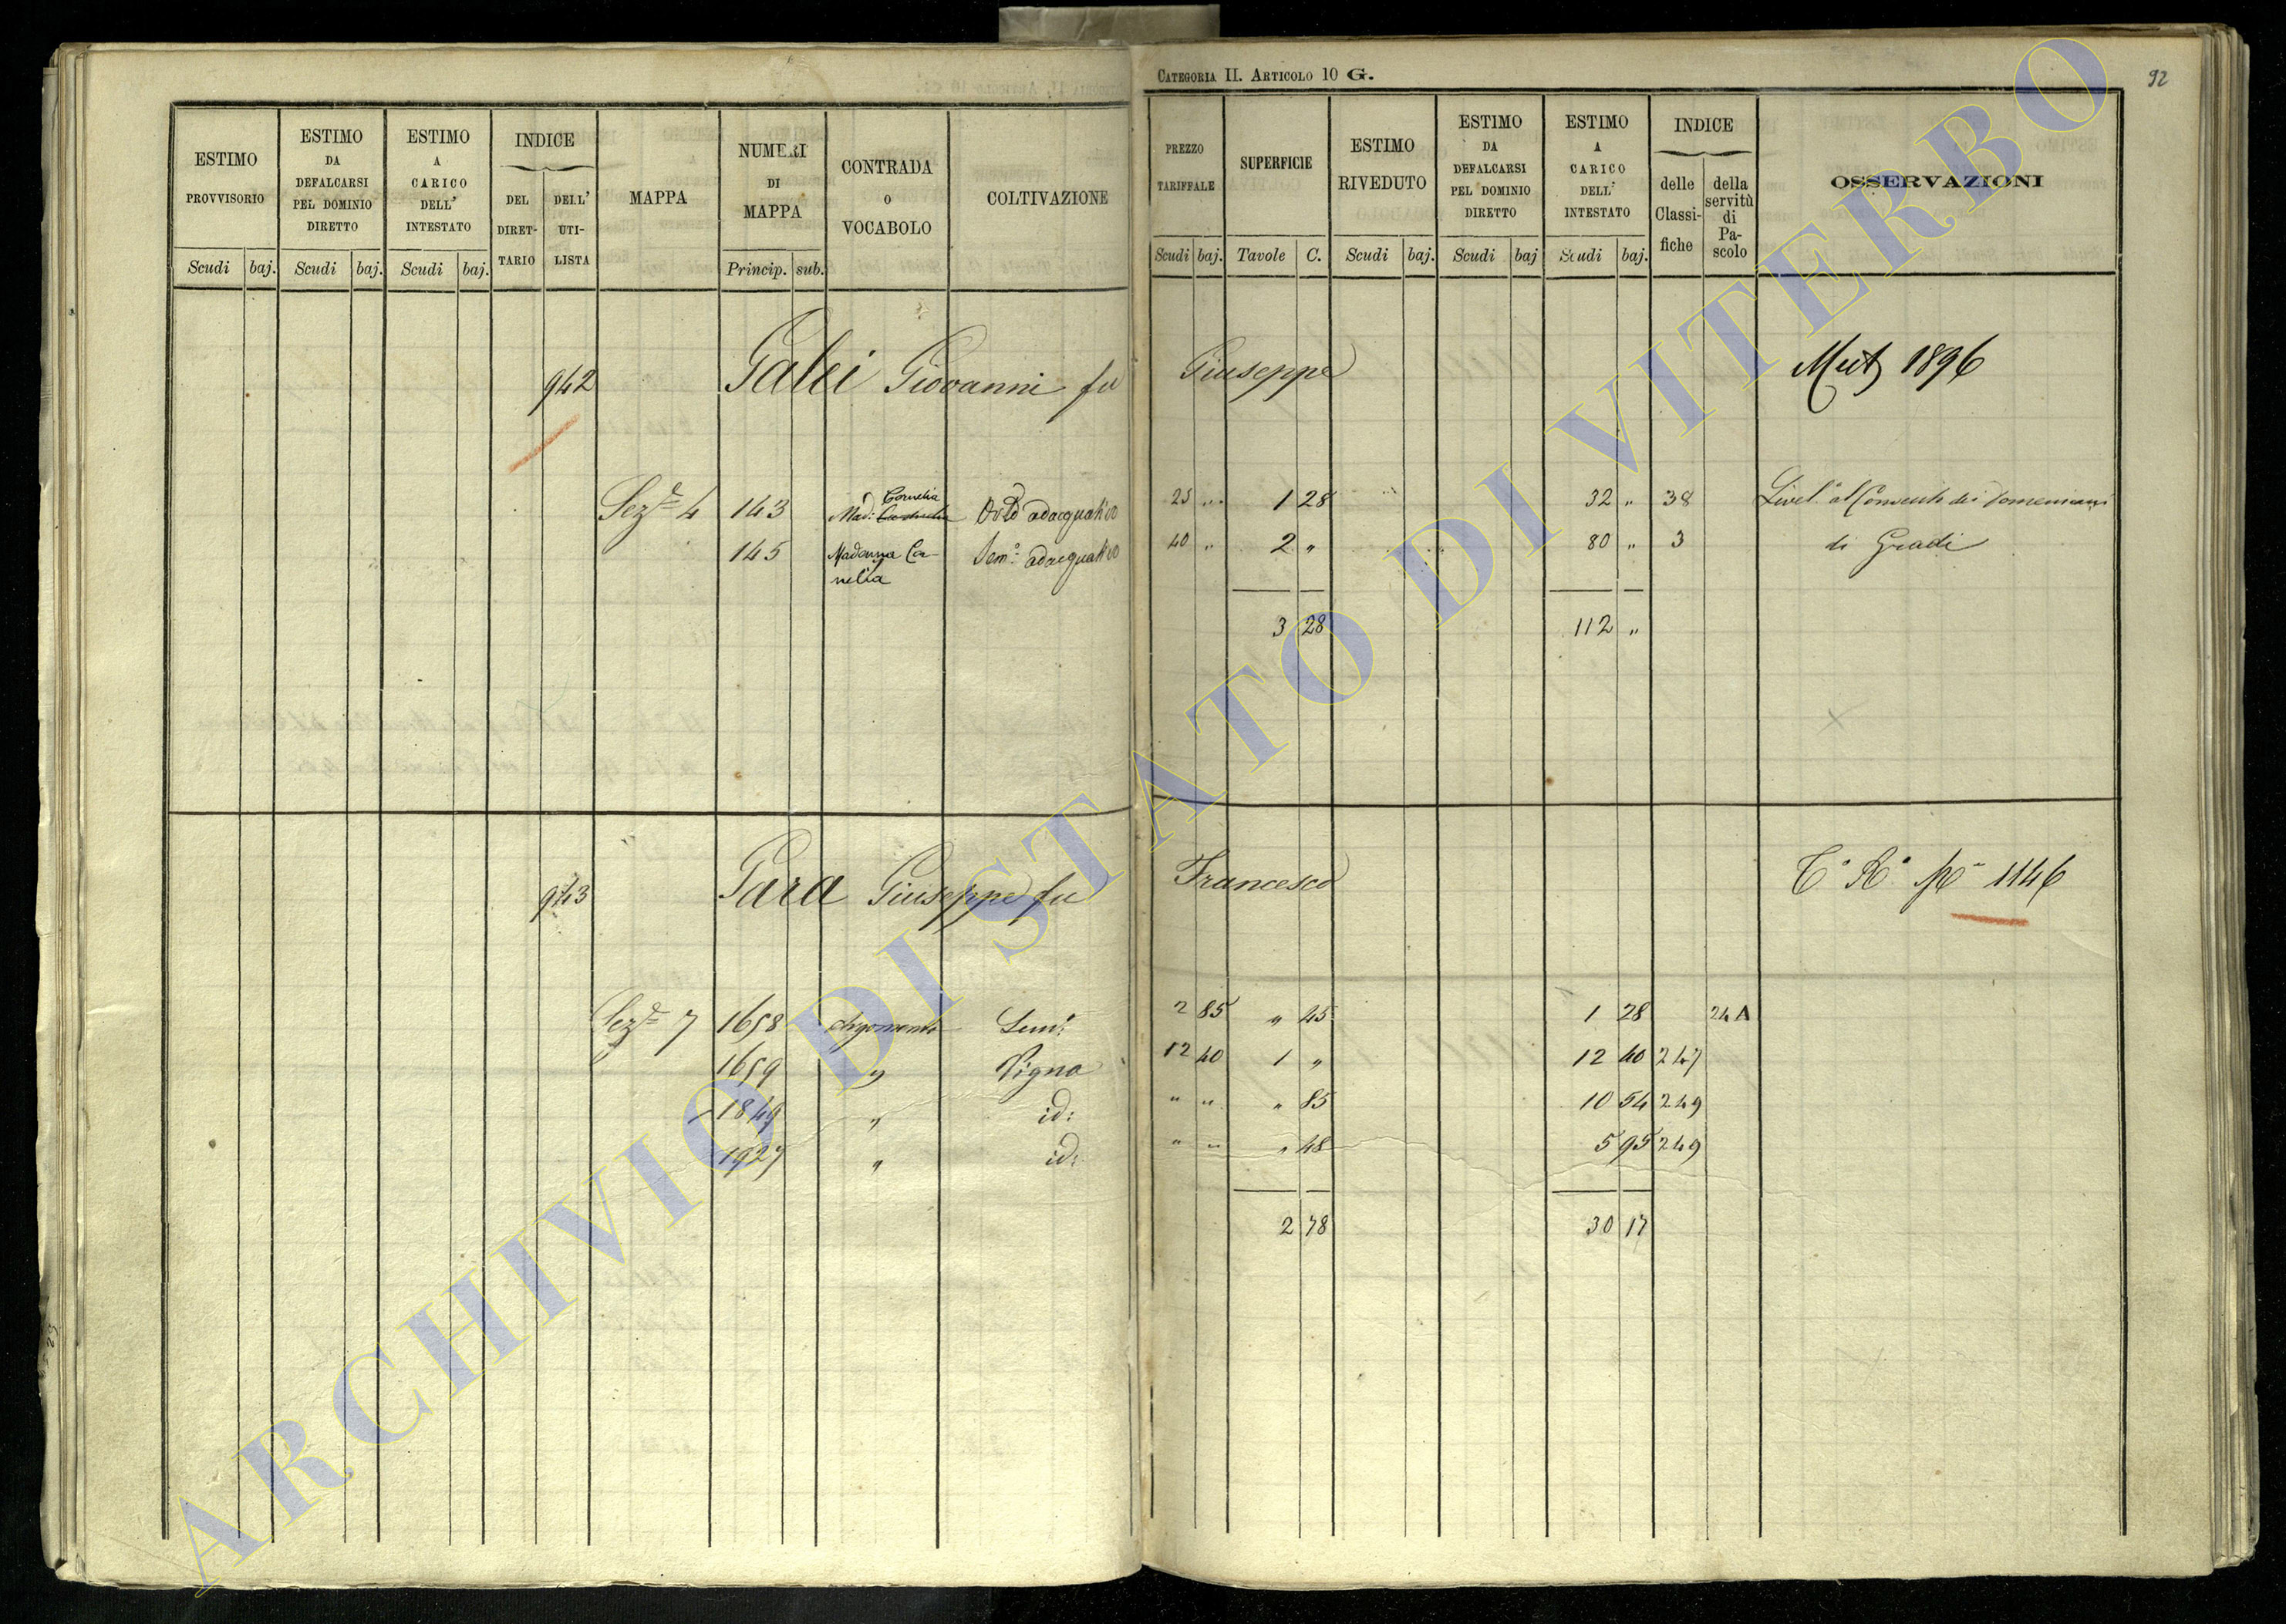 CATEGORIA II. ARTICOLO 10 G.
92
ESTIMO PROVVISORIO
Scudi baj.
ESTIMO DA DEFALCARSI PEL DOMINIO DIRETTO
Scudi baj.
ESTIMO A CARICO DELL' INTESTATO
Scudi baj.
INDICE
DEL DIRET-TARIO
DELL' UTI-LISTA
MAPPA
NUMERI DI MAPPA
Princip. sub.
CONTRADA O VOCABOLO
COLTIVAZIONE
PREZZO TARIFFALE
Scudi baj.
SUPERFICIE
Tavole C.
ESTIMO RIVEDUTO
Scudi baj.
ESTIMO DA DEFALCARSI PEL DOMINIO DIRETTO
Scudi baj
ESTIMO A CARICO DELL' INTESTATO
Scudi baj.
INDICE
delle Classi-fiche
della servitù di Pa-scolo
OSSERVAZIONI
942 Galei Giovanni fu Giuseppe Mut 1896
Sez.e 4 143 Mad: Cornelia Orto adacquativo 25 " 1 28 32 " 38 Livel.o al Convento dei Domenicani
145 Madonna Cornelia Sem.o adacquativo 40 " 2 " 80 " 3 di Gradi
3 28 112 "
943 Gara Giuseppe fu Francesco 1146
Sez.e 7 1658 Sem.o 2 85 " 45 1 28 24 A
1659 " Vigna 12 40 1 " 12 40 247
1849 " id: " " " 85 10 54 249
1927 " id: " " " 48 5 95 249
2 78 30 17
ARCHIVIO DI STATO DI VITERBO